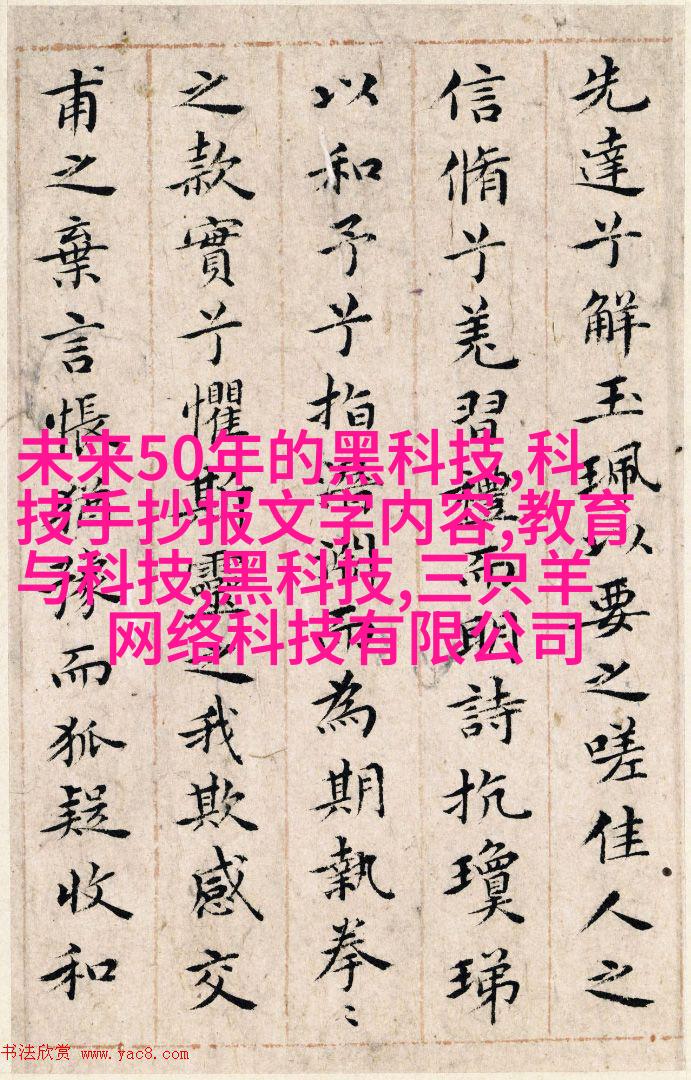 先達兮解玉珮以要之嗟佳人之
信脩兮羌習禮而明詩抗瓊珶
以和予兮指潛淵而為期執拳〻
之款實兮懼斯靈之我欺感交
甫之棄言悵猶豫而狐疑收和
未来50年的黑科技,科
技手抄报文字内容,教育
与科技,黑科技,三只羊
网络科技有限公司
书法欣赏 www.yac8.com